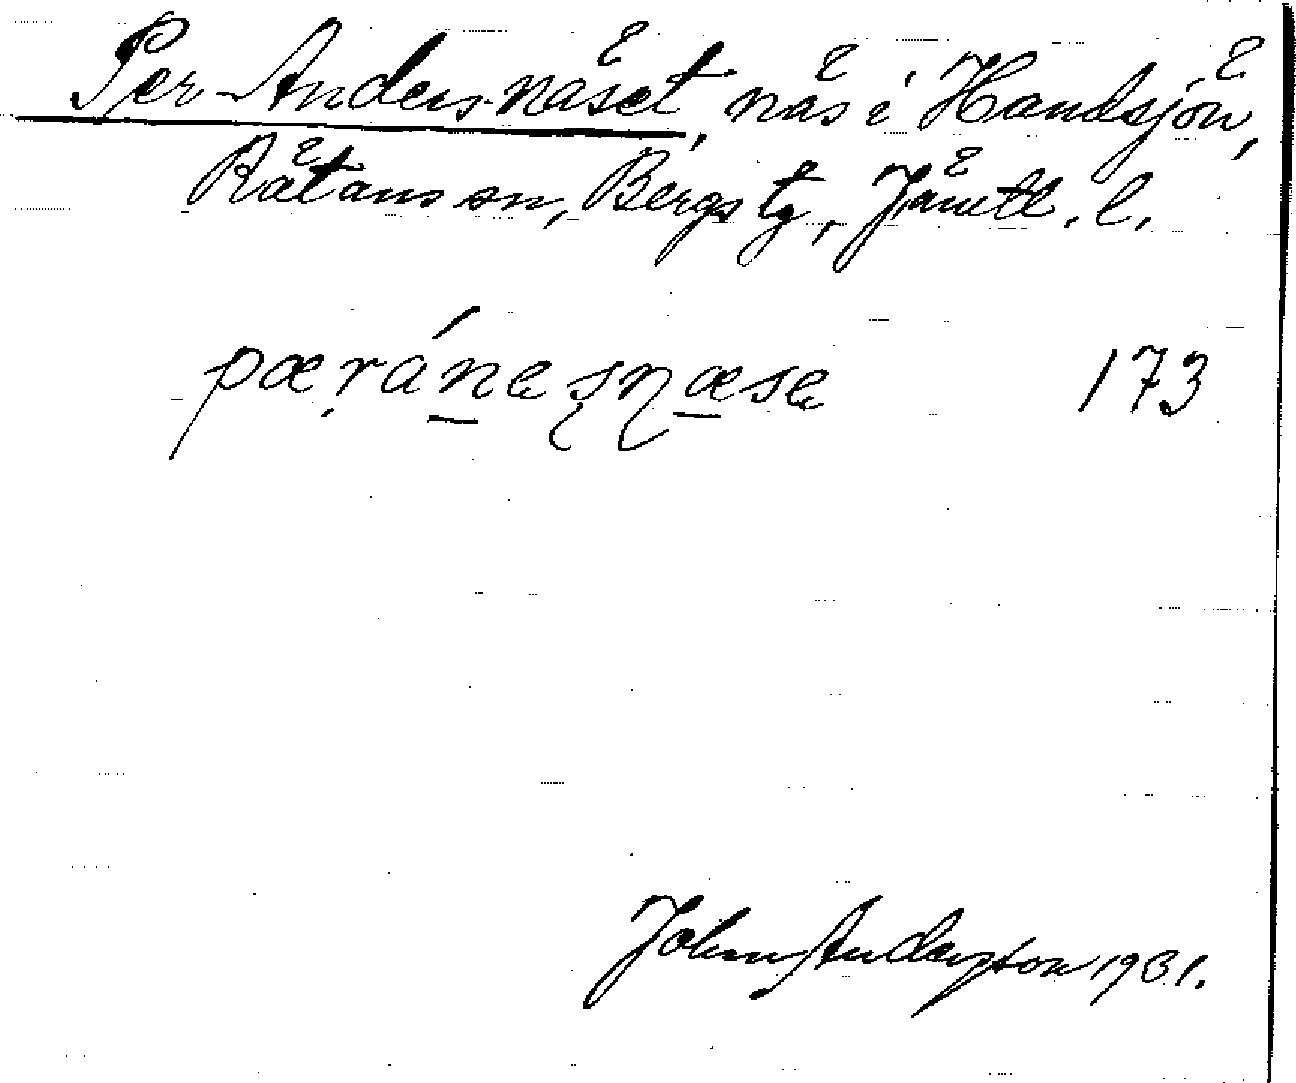 Per-Andersnäset, näs i Handsjön,
Rätans sn, Bergs tg, Jämtl. l.
pæráneṣṇæse 173
John Anderzton 1931.